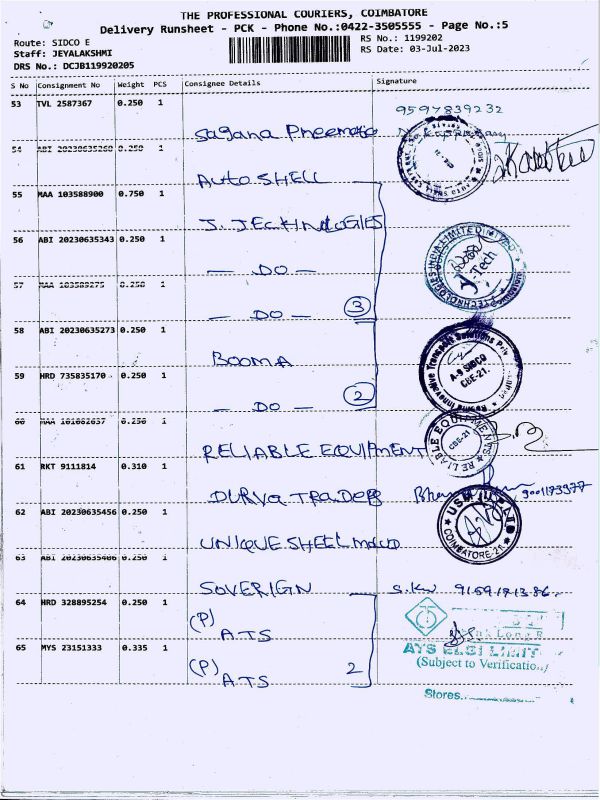 THE PROFESSIONAL COURIERS, COIMBATORE
Delivery Runsheet - PCK - Phone No.:0422-3505555 - Page No.:5
Route: SIDCO E
RS No.: 1199202
Staff: JEYALAKSHMI
RS Date: 03-Jul-2023
DRS No.: DCJB119920205
S No Consignment No Weight PCS Consignee Details Signature
53 TVL 2587367 0.250 1
9597839232
Sagana Pneematic
54 ABI 20230635260 0.250 1
AUTO SHELL
55 MAA 103588900 0.750 1
J. TECHNOLOGIES
56 ABI 20230635343 0.250 1
— DO —
J-Tech
57 MAA 103589275 0.250 1
— DO — 3
58 ABI 20230635273 0.250 1
BOOMA
A-9 SIDCO
CBE-21.
59 HRD 735835170 0.250 1
— DO — 2
60 0.250 1
RELIABLE EQUIPMENT
RELIABLE EQUIPMENTS
CBE-21
61 RKT 9111814 0.310 1
DURVA TRADERS
62 ABI 20230635456 0.250 1
UNIQUE SHELL MOULD
COIMBATORE-21
63 ABI 20230635406 0.250 1
SOVERIGN
64 HRD 328895254 0.250 1
(P)
ATS
65 MYS 23151333 0.335 1
(P)
ATS 2
ATS ELGI LIMIT
(Subject to Verification)
Stores